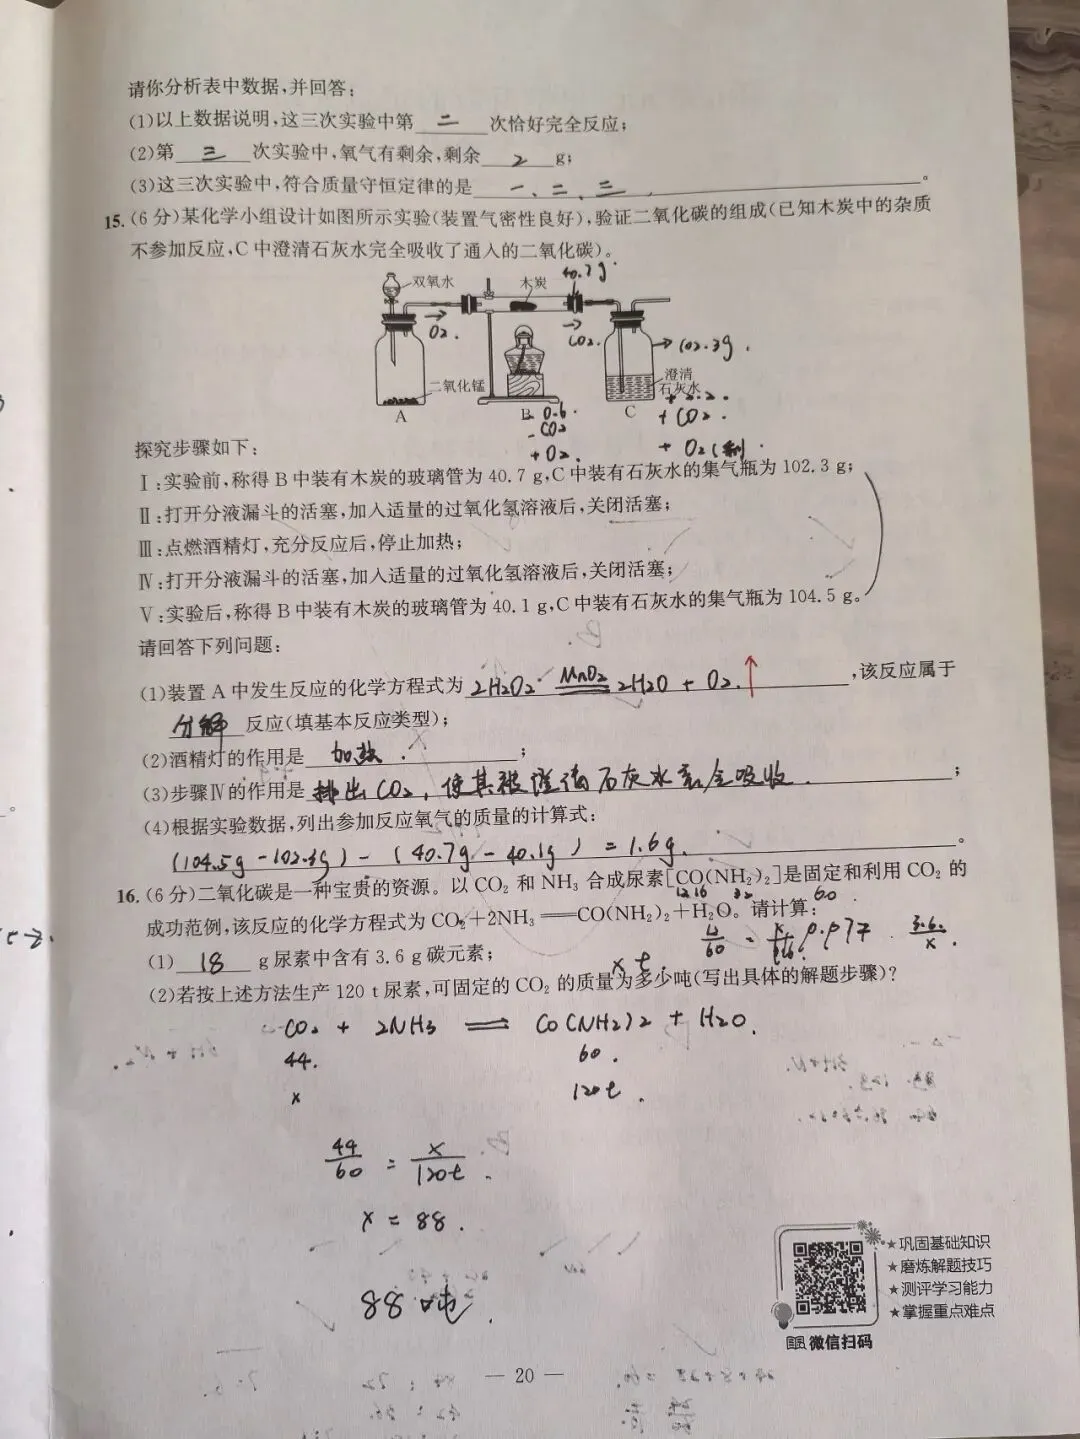 请你分析表中数据,并回答:
(1)以上数据说明,这三次实验中第 二 次恰好完全反应;
(2)第 三 次实验中,氧气有剩余,剩余 2 g;
(3)这三次实验中,符合质量守恒定律的是 一、二、三 。
15.(6分)某化学小组设计如图所示实验(装置气密性良好),验证二氧化碳的组成(已知木炭中的杂质
不参加反应,C中澄清石灰水完全吸收了通入的二氧化碳)。
40.7g.
双氧水 木炭
O2. CO2. 102.3g.
二氧化锰 澄清
石灰水
A B C
- 0.6. + 2.2.
- CO2 + CO2.
+ O2. + O2(剩
探究步骤如下:
Ⅰ:实验前,称得B中装有木炭的玻璃管为40.7 g,C中装有石灰水的集气瓶为102.3 g;
Ⅱ:打开分液漏斗的活塞,加入适量的过氧化氢溶液后,关闭活塞;
Ⅲ:点燃酒精灯,充分反应后,停止加热;
Ⅳ:打开分液漏斗的活塞,加入适量的过氧化氢溶液后,关闭活塞;
Ⅴ:实验后,称得B中装有木炭的玻璃管为40.1 g,C中装有石灰水的集气瓶为104.5 g。
请回答下列问题:
(1)装置A中发生反应的化学方程式为 2H2O2 MnO2 2H2O + O2.↑ ,该反应属于
分解 反应(填基本反应类型);
(2)酒精灯的作用是 加热. ;
(3)步骤Ⅳ的作用是 排出CO2, 使其被澄清石灰水完全吸收. ;
(4)根据实验数据,列出参加反应氧气的质量的计算式:
(104.5g - 102.3g) - (40.7g - 40.1g) = 1.6g. 。
16.(6分)二氧化碳是一种宝贵的资源。以CO₂和NH₃合成尿素[CO(NH₂)₂]是固定和利用CO₂的
12 16 32 60
成功范例,该反应的化学方程式为CO₂+2NH₃══CO(NH₂)₂+H₂O。请计算:
(1) 18 g尿素中含有3.6 g碳元素;
x t.
(2)若按上述方法生产120 t尿素,可固定的CO₂的质量为多少吨(写出具体的解题步骤)?
CO2 + 2NH3 = CO(NH2)2 + H2O.
44. 60.
x 120t.
44/60 = x/120t.
x = 88.
88吨.
★巩固基础知识
★磨炼解题技巧
★测评学习能力
★掌握重点难点
微信扫码
— 20 —